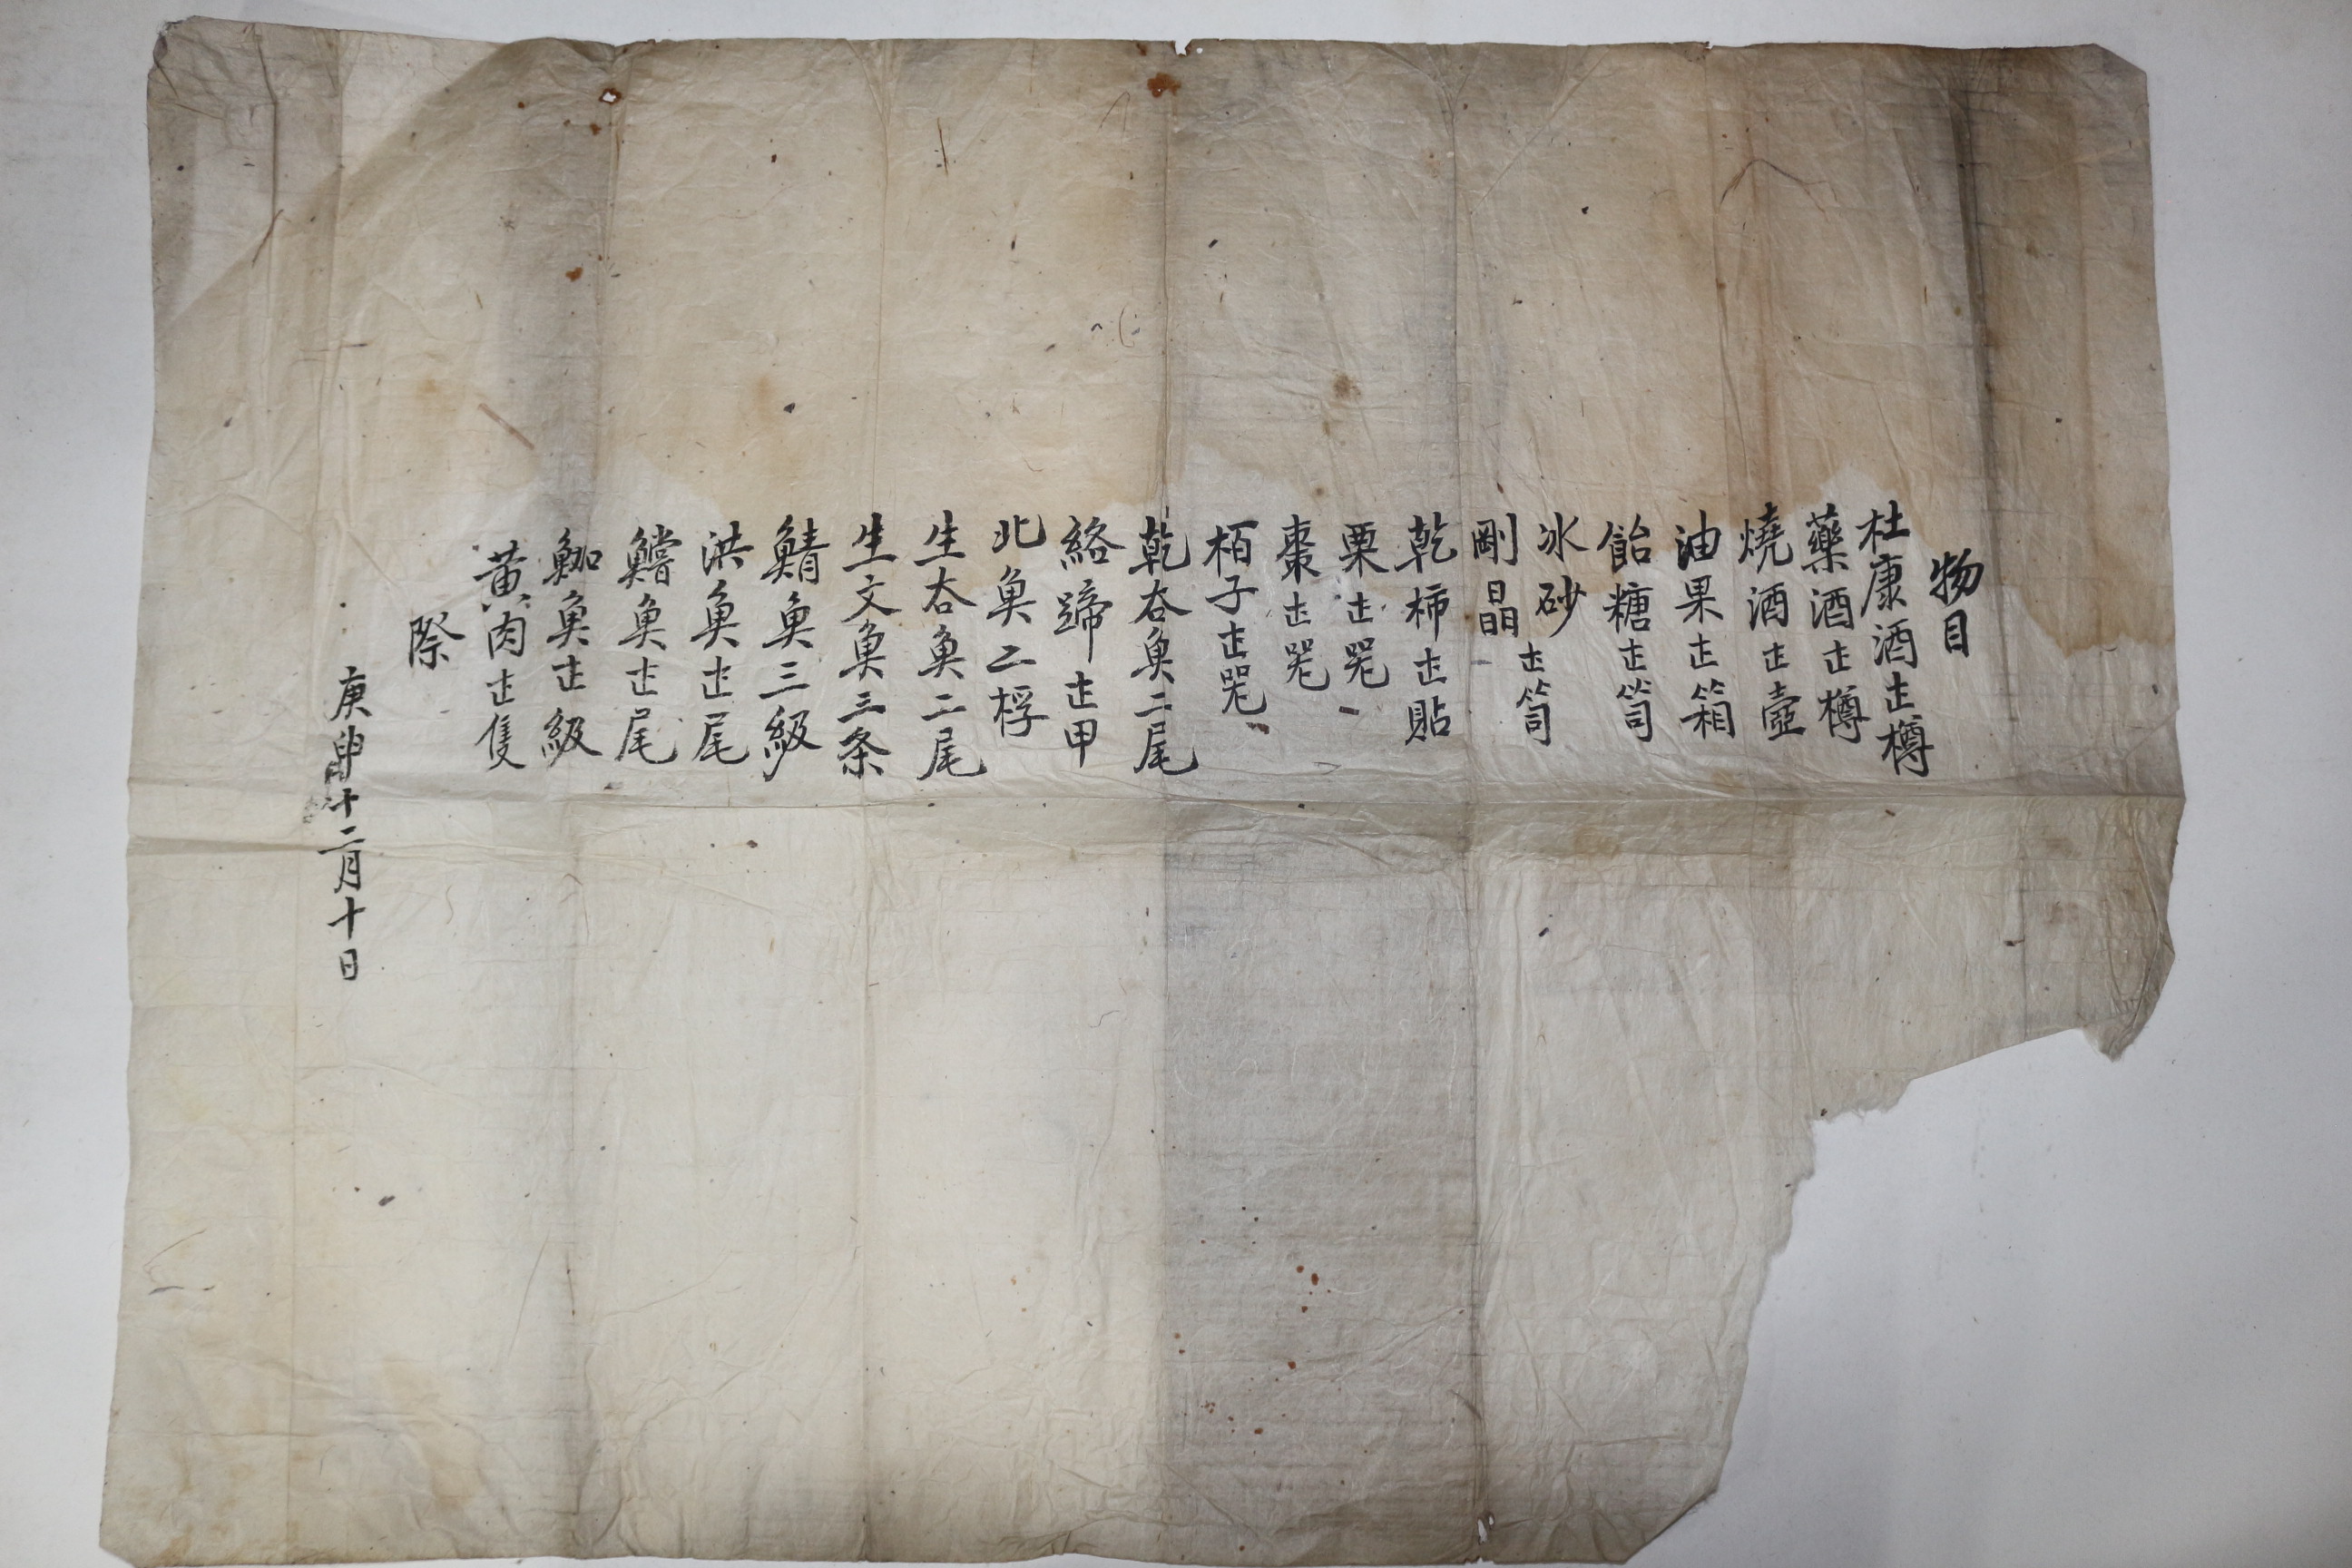 物目
杜康酒壹樽
藥酒壹樽
燒酒壹壺
油果壹箱
飴糖壹笥
冰砂
剛晶
壹笥
乾柿壹貼
栗壹器
棗壹器
栢子壹器
乾夻魚二尾
絡蹄壹甲
北魚二桴
生夻魚二尾
生文魚三条
鯖魚三級
洪魚壹尾
鱨魚壹尾
魚壹級
黃肉壹隻
際
庚申十二月十日